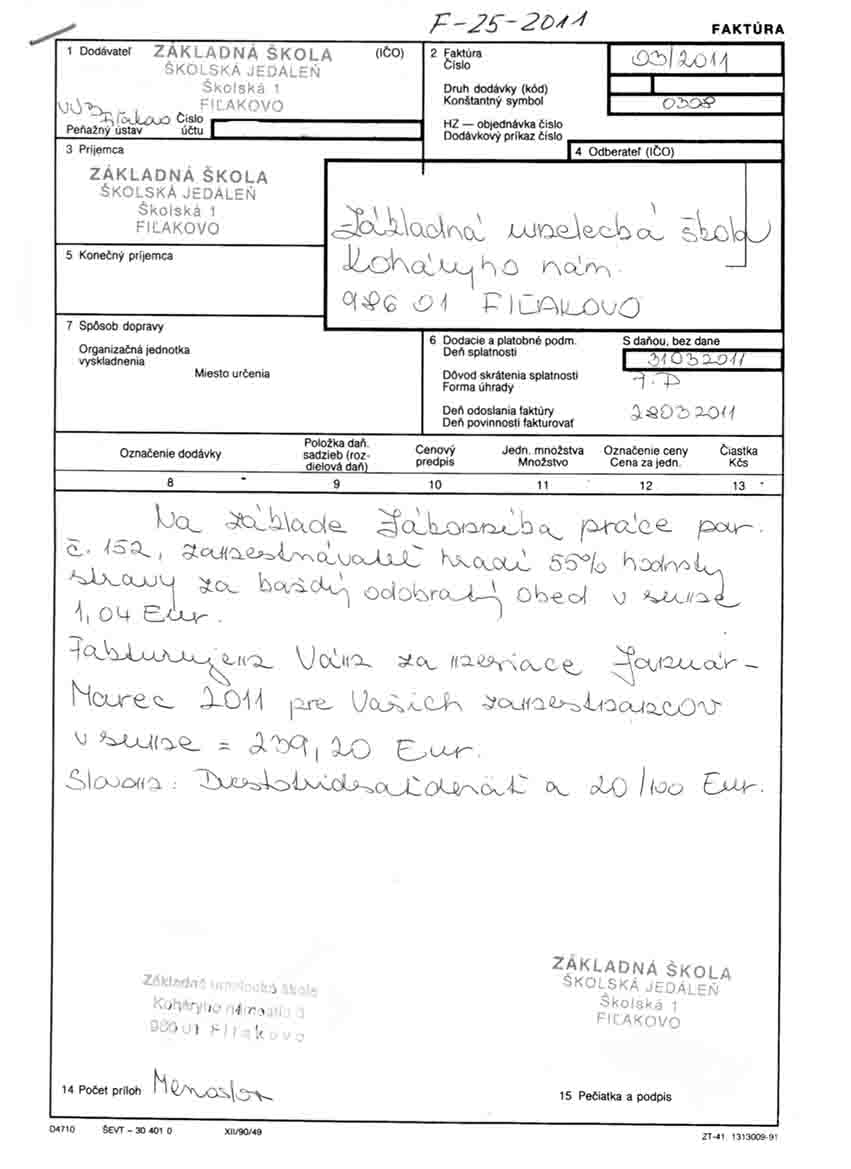 F-25-2011
FAKTÚRA
1 Dodávateľ ZÁKLADNÁ ŠKOLA (IČO)
ŠKOLSKÁ JEDÁLEŇ
Školská 1
FIĽAKOVO
VÚB Fiľakovo Číslo
Peňažný ústav účtu
2 Faktúra
Číslo 03/2011
Druh dodávky (kód)
Konštantný symbol 0308
HZ — objednávka číslo
Dodávkový príkaz číslo
3 Príjemca
ZÁKLADNÁ ŠKOLA
ŠKOLSKÁ JEDÁLEŇ
Školská 1
FIĽAKOVO
4 Odberateľ (IČO)
Základná umelecká škola
Koháryho nám.
986 01 FIĽAKOVO
5 Konečný príjemca
7 Spôsob dopravy
Organizačná jednotka
vyskladnenia
Miesto určenia
6 Dodacie a platobné podm. S daňou, bez dane
Deň splatnosti 31032011
Dôvod skrátenia splatnosti
Forma úhrady 7.P
Deň odoslania faktúry 28032011
Deň povinnosti fakturovať
Označenie dodávky
Položka daň. sadzieb (roz-
dielová daň)
Cenový predpis
Jedn. množstva
Množstvo
Označenie ceny
Cena za jedn.
Čiastka
Kčs
8 9 10 11 12 13
Na základe Zákonníka práce par.
č. 152, zamestnávateľ hradí 55% hodnoty
stravy za každý odobratý obed v sume
1,04 Eur.
Fakturujem Vám za mesiace Január-
Marec 2011 pre Vašich zamestnancov
v sume = 239,20 Eur.
Slovom: Dvestotridsaťdeväť a 20/100 Eur.
Základná umelecká škola
Koháryho námestie
986 01 Fiľakovo
ZÁKLADNÁ ŠKOLA
ŠKOLSKÁ JEDÁLEŇ
Školská 1
FIĽAKOVO
14 Počet príloh
15 Pečiatka a podpis
D4710 ŠEVT – 30 401 0 XII/90/49
ZT-41. 1313009-91